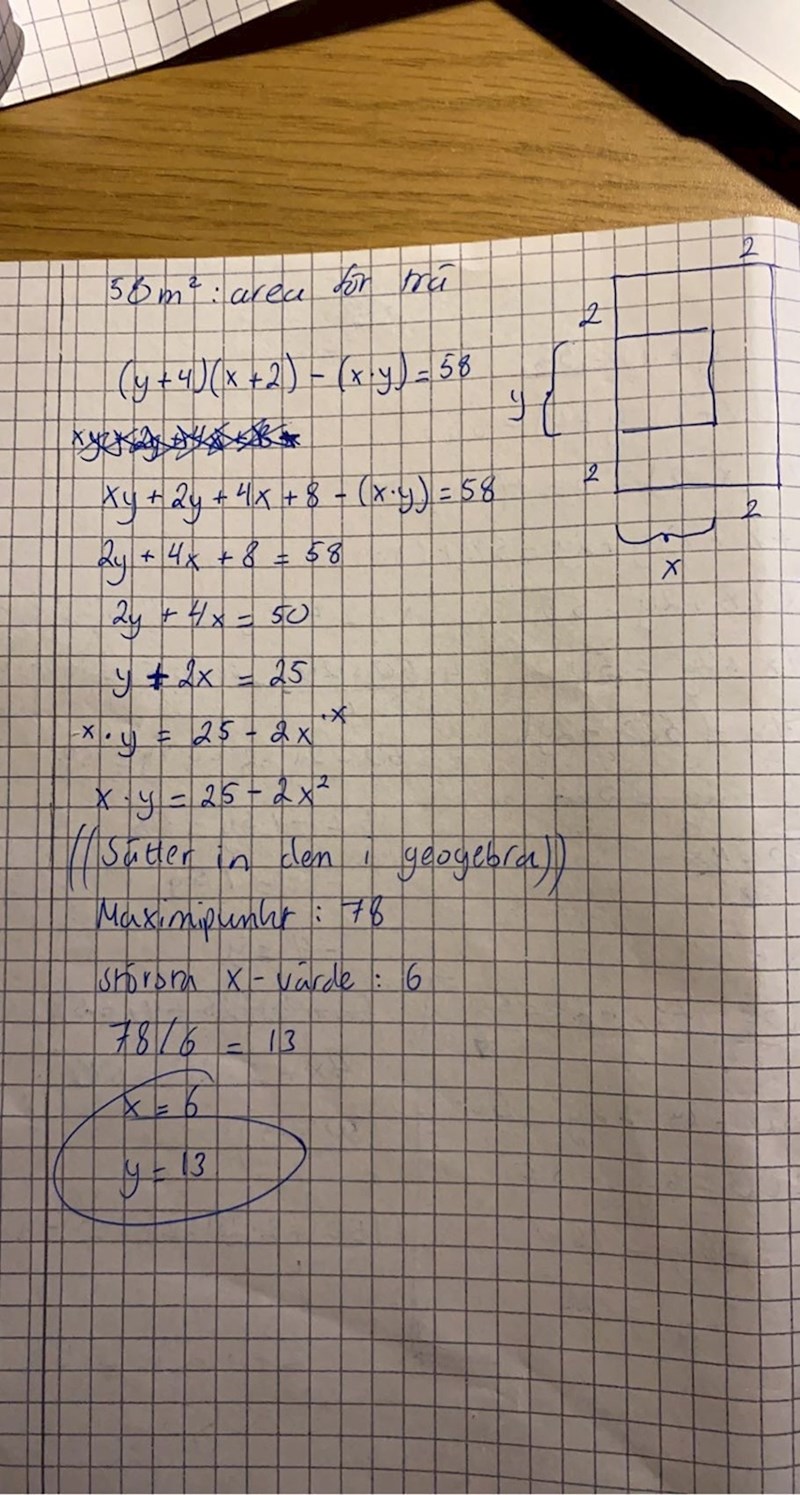 58 m² : area för trä
2
(y+4)(x+2) - (x·y) = 58
2
y
xy + 2y + 4x + 8 - (x·y) = 58
2
2
2y + 4x + 8 = 58
x
2y + 4x = 50
y + 2x = 25
x · y = 25 - 2x ·x
x · y = 25 - 2x²
((Sätter in den i geogebra))
Maximipunkt : 78
största x-värde : 6
78/6 = 13
x = 6
y = 13